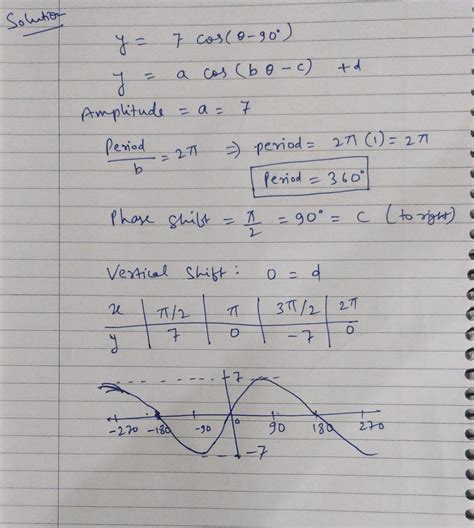 Solution
y = 7 cos(θ-90°)
y = a cos(bθ-c) +d
Amplitude = a = 7
Period/b = 2π ⇒ period = 2π(1) = 2π
Period = 360°
Phase shift = π/2 = 90° = c (to right)
Vertical Shift: 0 = d
x | π/2 | π | 3π/2 | 2π
y | 7 | 0 | -7 | 0
7
-270 -180 -90 0 90 180 270
-7